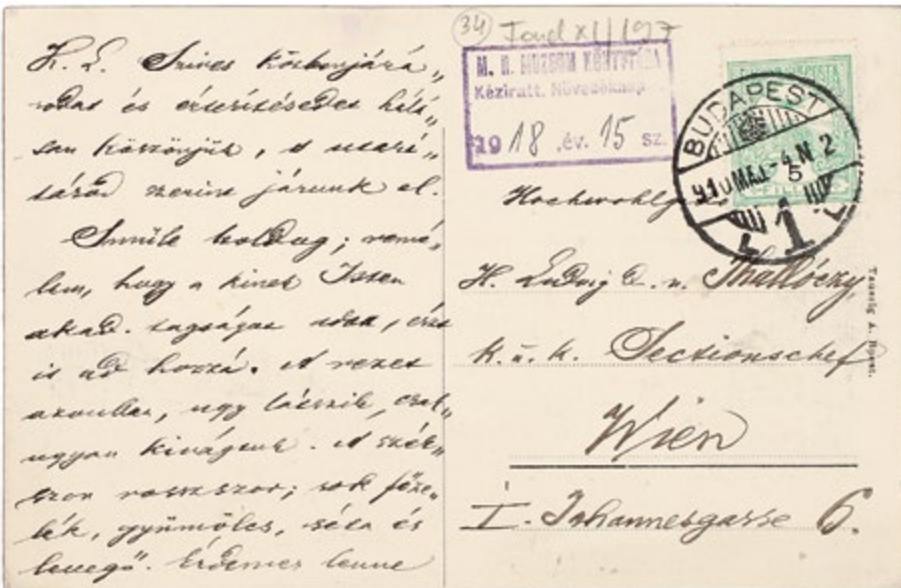 K. L. Szives köszönjárá„
rodat és értesítésedet hálá„
san köszönjük, s utasí„
tásod szerint járunk el.
Samule boldog; remé„
lem, hogy a kinek Isten
akad. tagságat adta, észt
is ad hozzá. A vezet
azonban, ugy látszik, csak„
ugyan kivágtuk. A szék„
szor rosszszor; sok főze„
lék, gyümölcs, séta és
levegő. Érdemes lenne
34 Fond XI/197
M. N. MUZEUM KÖNYVTÁRA
Kéziratt. Növedéknapló
1918 év. 15 sz.
BUDAPEST
910 MÁJ.-4.N 2
1
5
Hochwohlg
H. Ludwig D. v. Thallóczy
k. u. k. Sectionschef
Wien
I. Johannesgasse 6.
Taussig A. Bpest.